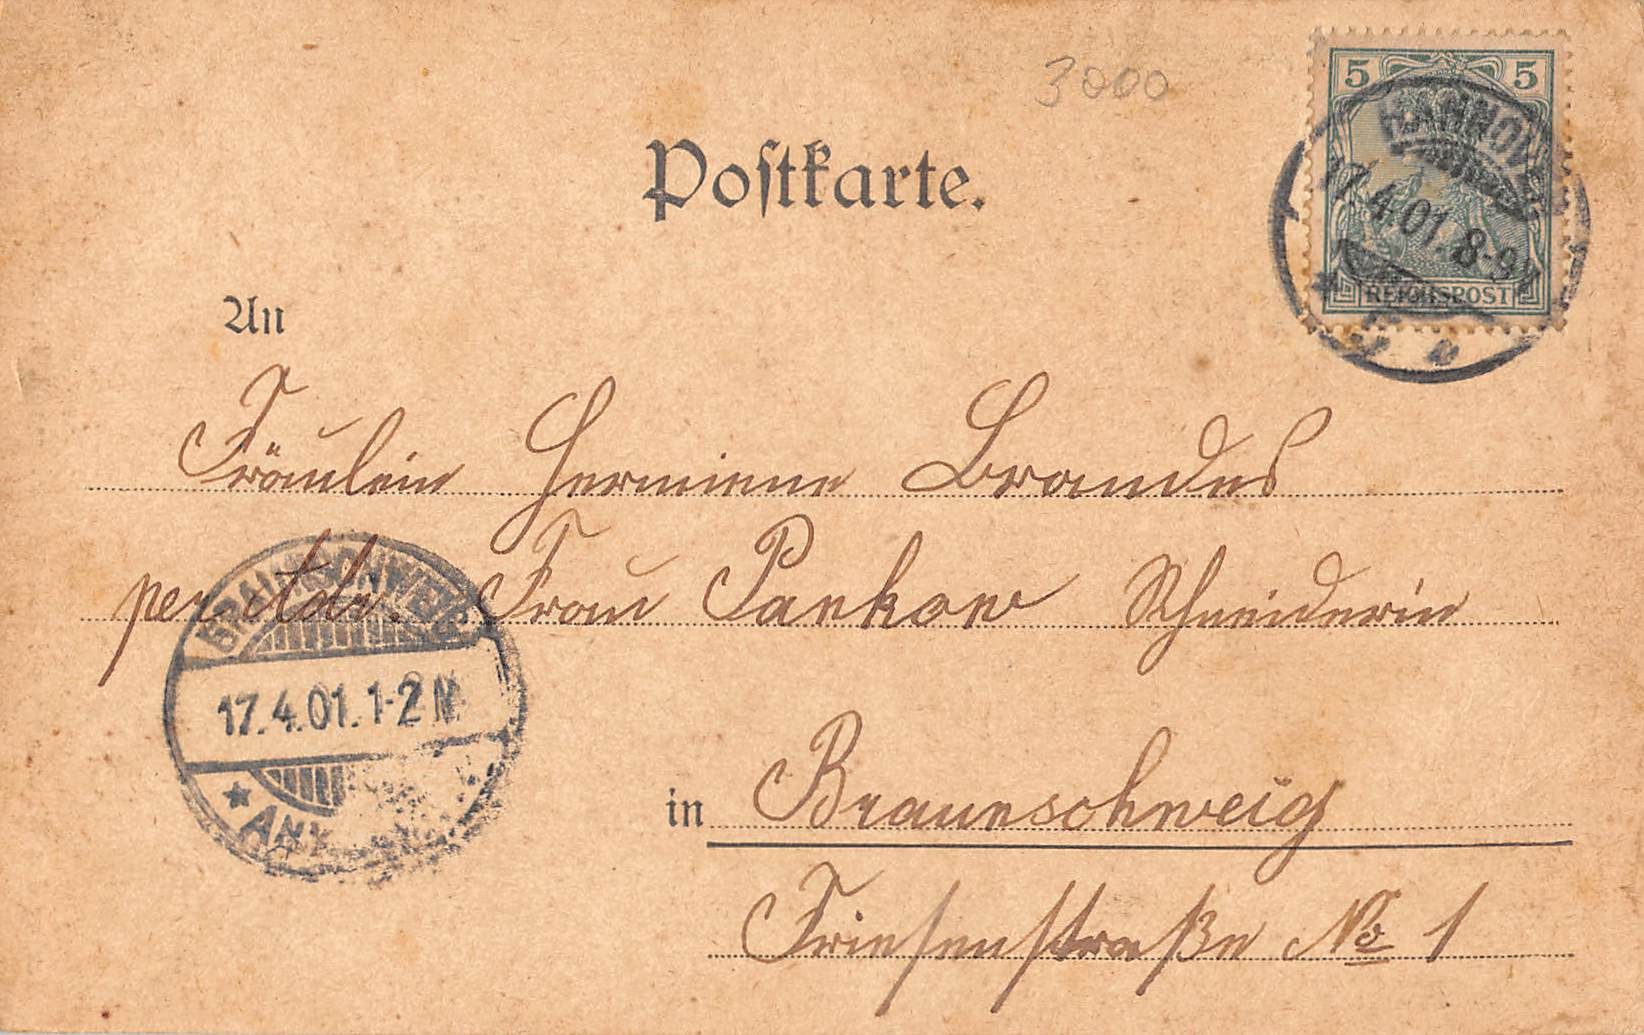 3000
5 5
HANNOVER
17.4.01. 8-9V
REICHSPOST
Postkarte.
An
Fräulein Hermiene Brandes
per Adr. Frau Pankow Schneiderin
BRAUNSCHWEIG
17.4.01. 1-2 N.
* ANK
in Braunschweig
Friesenstraße No 1